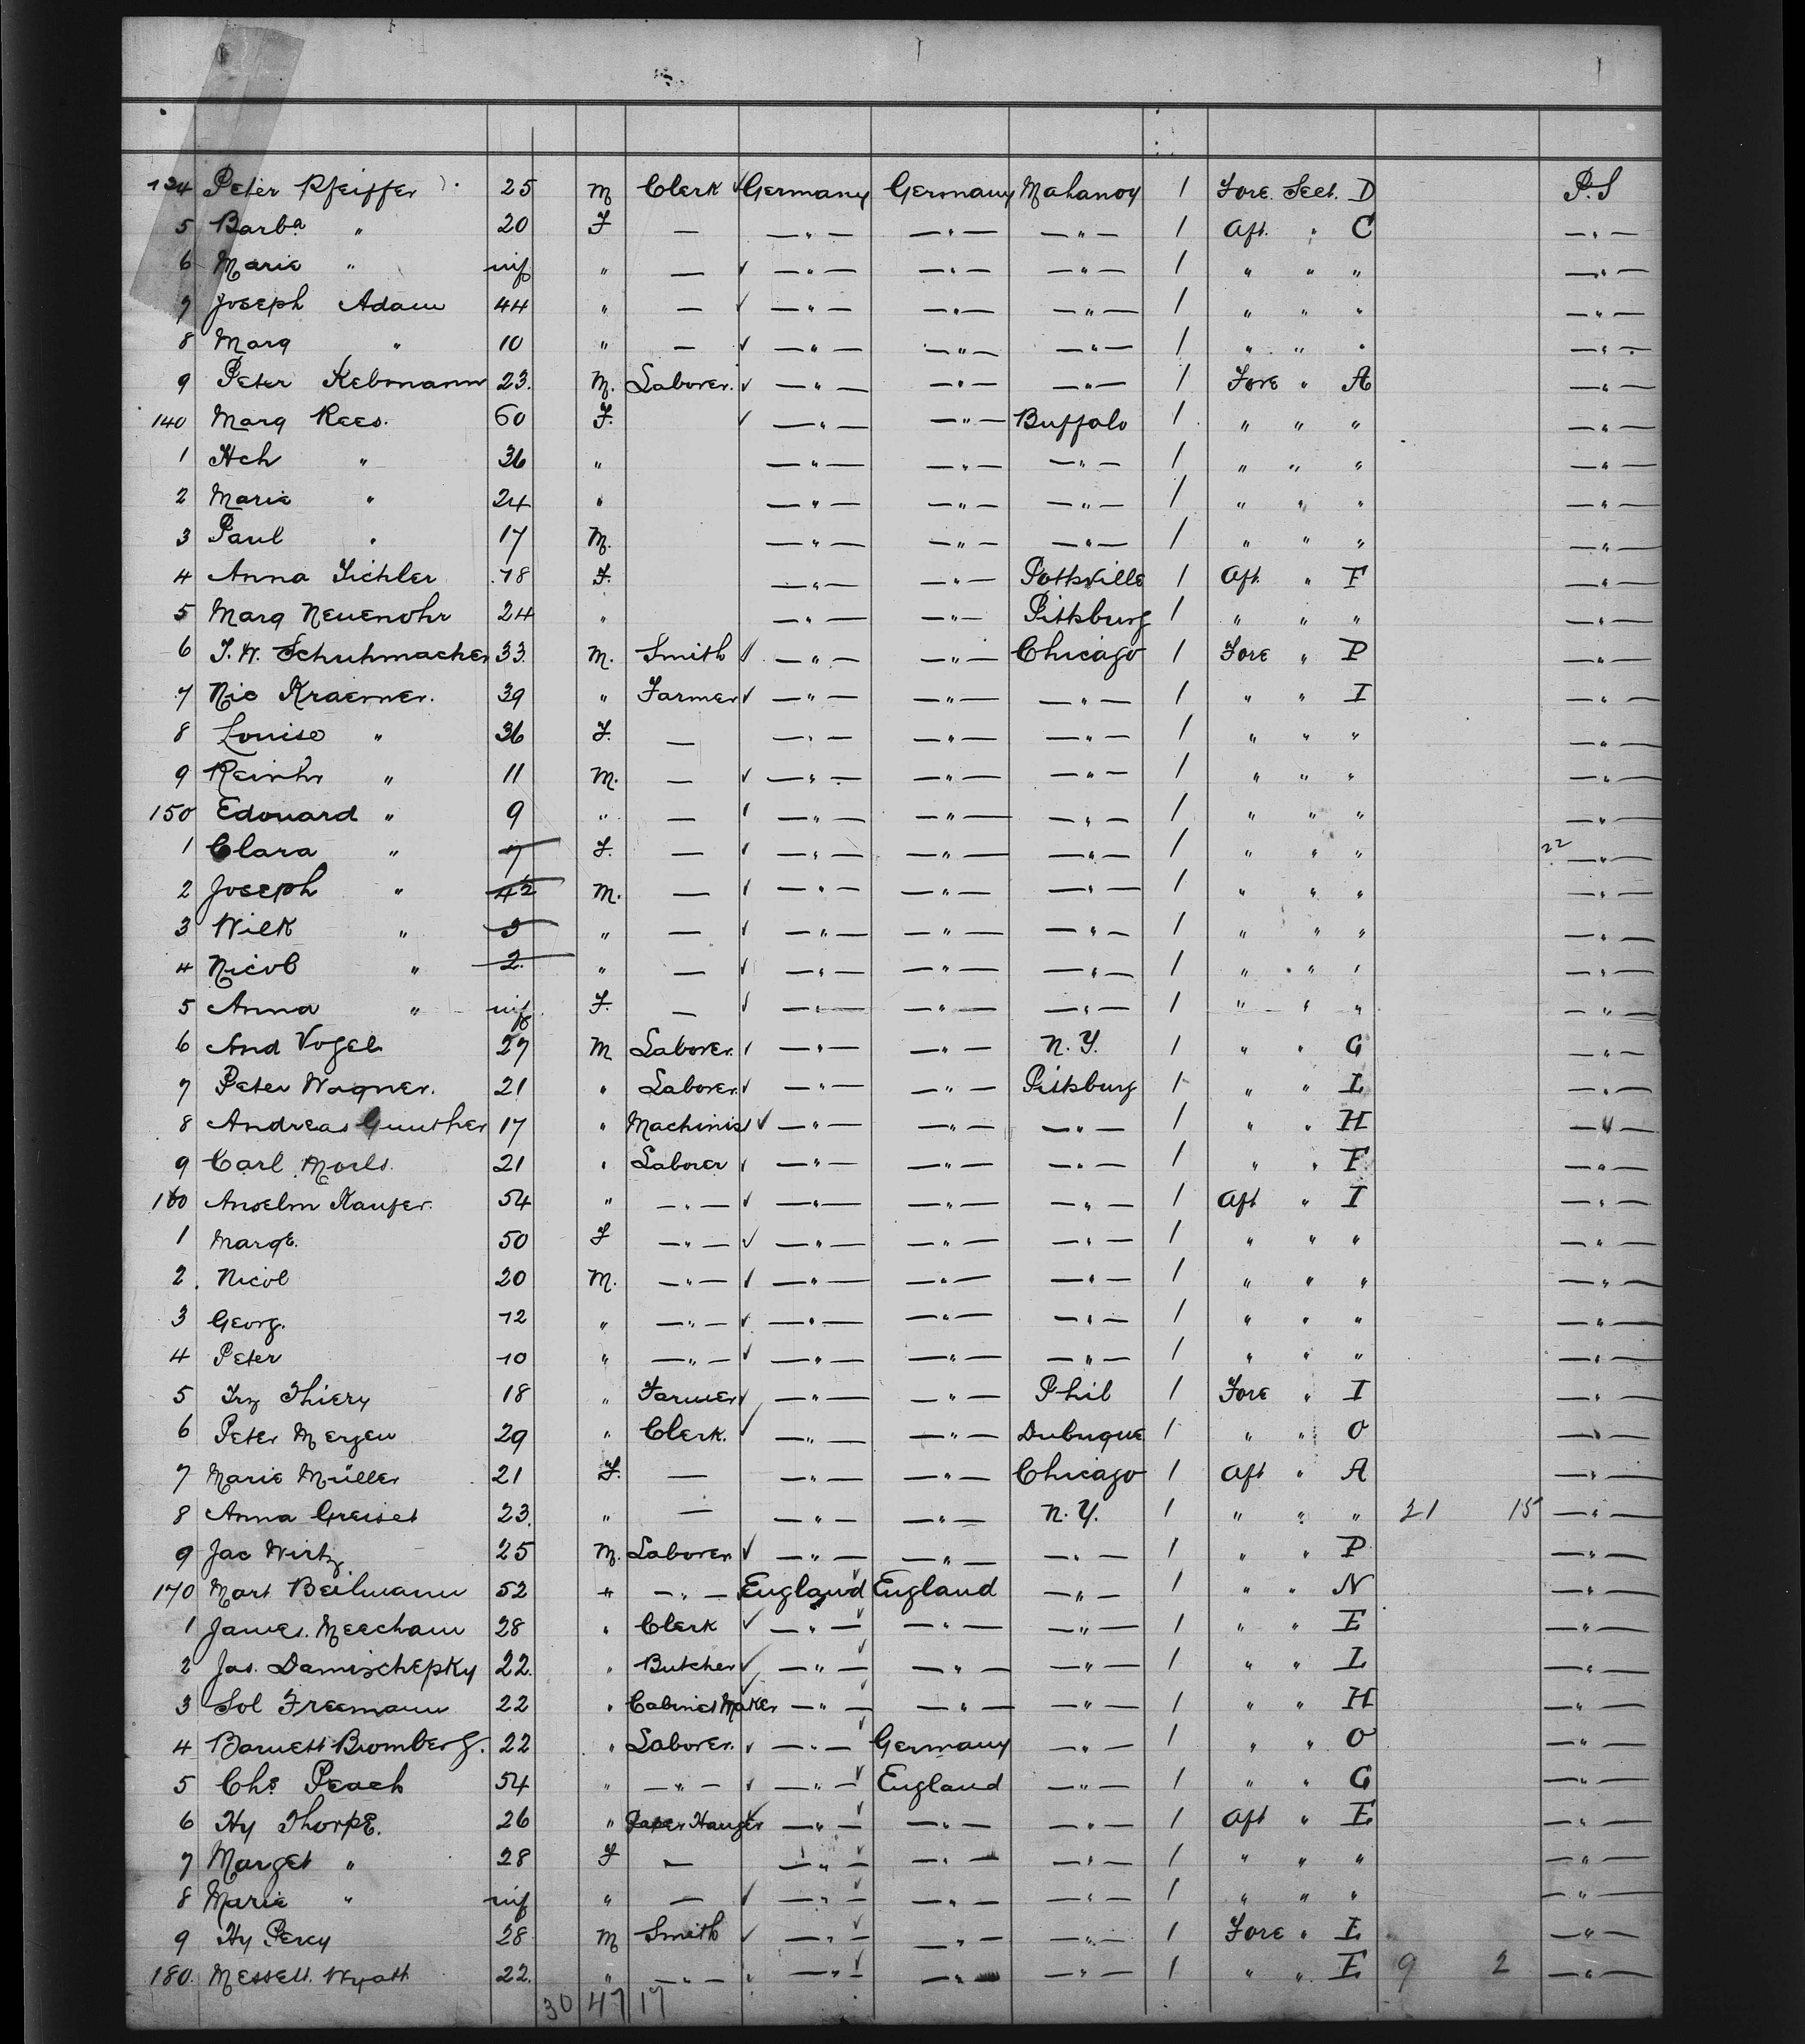 134 Peter Pfeiffer 25 M Clerk ✓ Germany Germany Mahanoy 1 Fore. Sect. D P.S
5 Barba " 20 F — —"— —"— —"— 1 Aft. " C —"—
6 Marie " inf " — ✓ —"— —"— —"— 1 " " " —"—
7 Joseph Adam 44 " — ✓ —"— —"— —"— 1 " " " —"—
8 Marg " 10 " — ✓ —"— —"— —"— 1 " " " —"—
9 Peter Kebmann 23. M. Laborer. ✓ —"— —"— —"— 1 Fore " A —"—
140 Marg Rees. 60 F. ✓ —"— —"— Buffalo 1 " " " —"—
1 Hch " 36 " —"— —"— —"— 1 " " " —"—
2 Marie " 24 " —"— —"— —"— 1 " " " —"—
3 Paul " 17 M. —"— —"— —"— 1 " " " —"—
4 Anna 18 F. —"— —"— Pottsville 1 Aft " F —"—
5 Marg Neuenohr 24 " —"— —"— Pittsburg 1 " " " —"—
6 J. W. Schuhmacher 33. M. Smith ✓ —"— —"— Chicago 1 Fore " P —"—
7 Nic Kraemer. 39 " Farmer ✓ —"— —"— —"— 1 " " I —"—
8 Louise " 36 F. — —"— —"— —"— 1 " " " —"—
9 Reinhr " 11 M. — ✓ —"— —"— —"— 1 " " " —"—
150 Edouard " 9 " — ✓ —"— —"— —"— 1 " " " —"—
1 Clara " 7 F. — ✓ —"— —"— —"— 1 " " " 22 —"—
2 Joseph " M. — ✓ —"— —"— —"— 1 " " " —"—
3 Wilh " 3 " — ✓ —"— —"— —"— 1 " " " —"—
4 Nicol " 2. " — ✓ —"— —"— —"— 1 " " " —"—
5 Anna " inf F. — ✓ —"— —"— —"— 1 " " " —"—
6 And Vogel 27 M Laborer. ✓ —"— —"— N.Y. 1 " " G —"—
7 Peter Wagner. 21 " Laborer. ✓ —"— —"— Pittsburg 1 " " L —"—
8 Andreas Gunther 17 " Machinist ✓ —"— —"— —"— 1 " " H —"—
9 Carl Morls. 21 " Laborer ✓ —"— —"— —"— 1 " " F —"—
160 Anselm Kaufer. 54 " —"— ✓ —"— —"— —"— 1 Aft " I —"—
1 Margt. 50 F —"— ✓ —"— —"— —"— 1 " " " —"—
2. Nicol 20 M. —"— ✓ —"— —"— —"— 1 " " " —"—
3 Georg. 12 " —"— ✓ —"— —"— —"— 1 " " " —"—
4 Peter 10 " —"— ✓ —"— —"— —"— 1 " " " —"—
5 Thiery 18 " Farmer ✓ —"— —"— Phil 1 Fore " I —"—
6 Peter Mergen 29 " Clerk. ✓ —"— —"— Dubuque 1 " " O —"—
7 Marie Müller 21 F. — —"— —"— Chicago 1 Aft " A —"—
8 Anna Greiset 23. " — —"— —"— N.Y. 1 " " " 21 15 —"—
9 Jac Wirtz 25 M. Laborer ✓ —"— —"— —"— 1 " " P —"—
170 Mart Beilmann 52 " —"— England ✓ England —"— 1 " " N —"—
1 James. Meecham 28 " Clerk ✓ —"— ✓ —"— —"— 1 " " E —"—
2 Jas. Damischepsky 22. " Butcher ✓ —"— ✓ —"— —"— 1 " " L —"—
3 Sol Freemann 22 " Cabinet Maker ✓ —"— ✓ —"— —"— 1 " " H —"—
4 Barnett Bromberg. 22 " Laborer. ✓ —"— ✓ Germany —"— 1 " " O —"—
5 Chs Peach 54 " —"— ✓ —"— ✓ England —"— 1 " " G —"—
6 Hy Thorpe. 26 " Paper Hanger ✓ —"— ✓ —"— —"— 1 Aft " E —"—
7 Marget " 28 F — —"— ✓ —"— —"— 1 " " " —"—
8 Marie " inf " — ✓ —"— ✓ —"— —"— 1 " " " —"—
9 Hy Percy 28 M Smith ✓ —"— ✓ —"— —"— 1 Fore " L —"—
180. Messett. Wyatt 22. " —"— " —"— ✓ —"— —"— 1 " " E 9 2 —"—
30 47 17